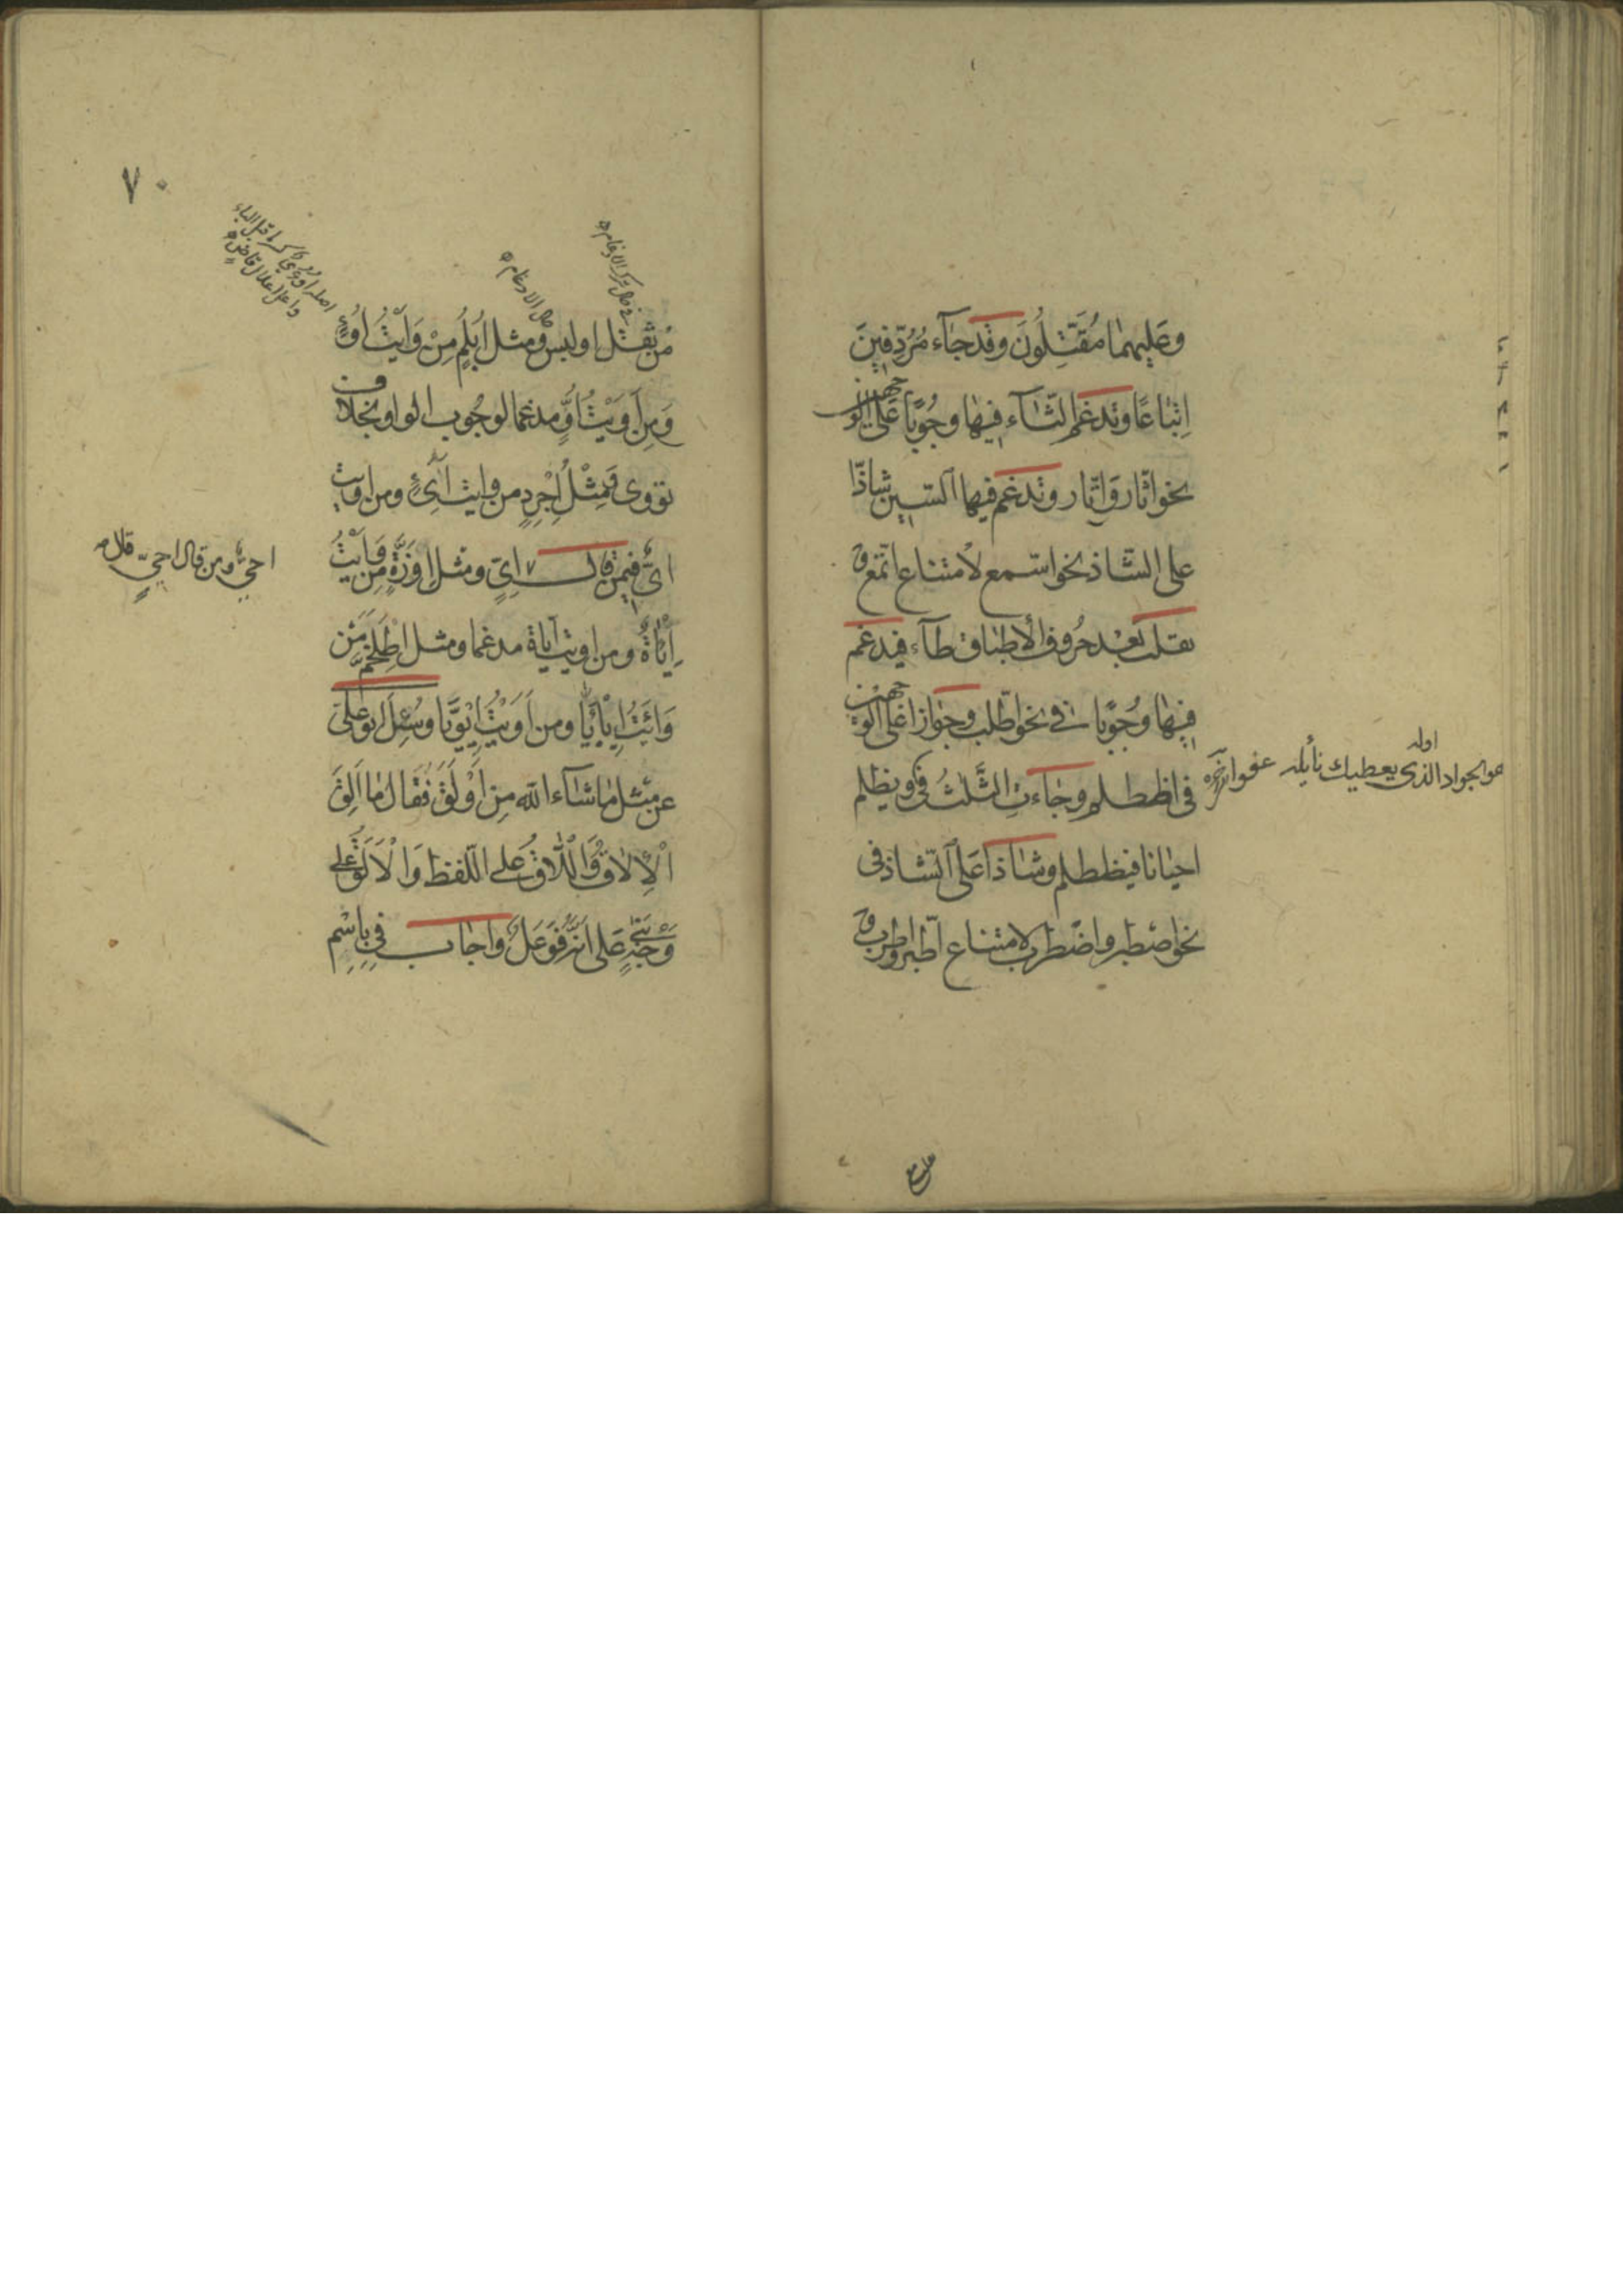 وعليهما مُقَتِّلُونَ وقد جاء مُرُدِّفينَ
اِتْباعًا وتدغم الثاء فيها وجُوبًا على الوجهين
نحو اثّار وَاتّار وتدغم فيها السّين شاذّا
على الشّاذ نحو اسّمع لامتناع اتّمع و
تقلب بعد حُروف الأطباق طآء فيدغم
فيها وجُوبًا في نحو اطّلب وجوازا على الوجهين
في اظطلم وجاءتِ الثَّلٰثُ في ويظلم
احيانا فيظطلم وشاذا على الشّاذ في
نحو اصطبر واضطرب لامتناع اطّبر واطّرب و
اوله
هو الجواد الذي يعطيك نائله عفوا
٧٠
اصله اوءي كسر ما قبل الياء
واعل اعلال قاض
من ثقتل اوليس ومثل اُبْلُمٍ مِنْ وَأَيْتُ اُوْءٍ
وَمِن اَوَيْتُ اُوٍّ مدغما لوجُوب الواو بخلاف
تووى وَمِثْلُ اِجْرِدٍ من وايت اِيْءٍ ومن اويت
اىٌّ فيمن قال احىٌّ ومن قال احىٍّ قال
اىٍّ ومثل اِوَزَّةٍ مِن وَأَيْتُ
اِيْاَةٌ ومن اويت اِيّاة مدغما ومثل اِطْلَخَمَّ مِن
وَاَيْتُ اِيْأَيَّا ومن اَوَيْتُ اِيْوَيَّا وسُئِلَ ابو علىّ
عن مثل ما شآء الله مِن اَوْلَقَ فَقال ما اَلِقَ
الْاِلاقُ وَاللّاقُ على اللّفظ وَالْاَلَقُ على
وَجْهٍ بَنى على انَّه فَوْعَلٌ واجاب في بِاسْمِ